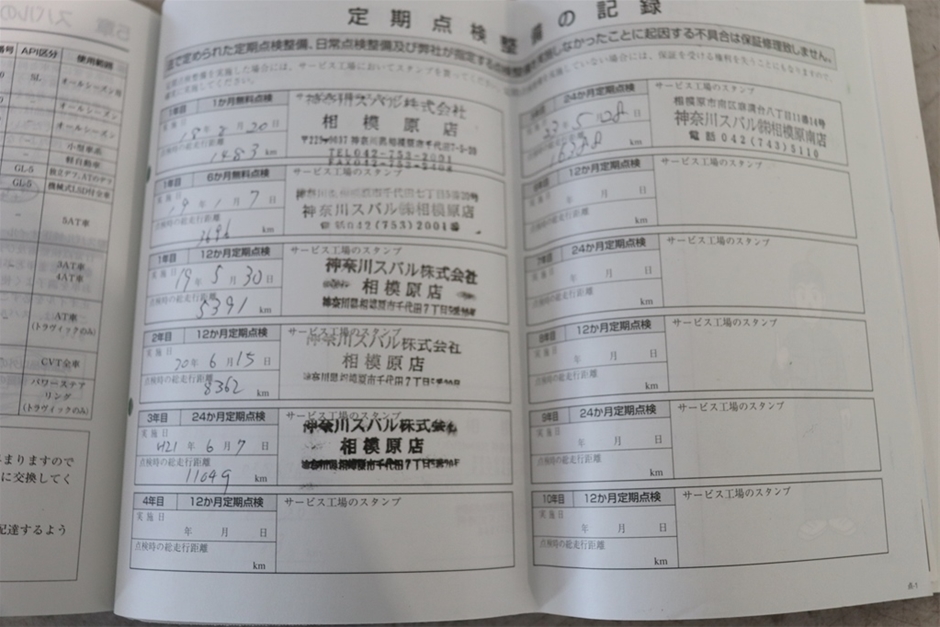 定期点検整備の記録
法で定められた定期点検整備、日常点検整備及び弊社が指定する点検整備を実施しなかったことに起因する不具合は保証修理致しません。
1年目 1か月無料点検
実施日 18年 20日
点検時の総走行距離
1483 km
神奈川スバル株式会社
相模原店
TEL 042-753-2001
1年目 6か月無料点検
サービス工場のスタンプ
実施日 19年1月7日
点検時の総走行距離
km
神奈川スバル㈱相模原店
電話042(753)2001番
1年目 12か月定期点検
サービス工場のスタンプ
実施日 19年5月30日
点検時の総走行距離
5391 km
神奈川スバル株式会社
相模原店
神奈川県相模原市千代田7丁目
2年目 12か月定期点検
サービス工場のスタンプ
実施日 20年6月15日
点検時の総走行距離
8362 km
神奈川スバル株式会社
相模原店
神奈川県相模原市千代田7丁目
3年目 24か月定期点検
サービス工場のスタンプ
実施日 H21年6月7日
点検時の総走行距離
11049 km
神奈川スバル株式会社
相模原店
4年目 12か月定期点検
サービス工場のスタンプ
実施日
年 月 日
点検時の総走行距離
km
24か月定期点検
サービス工場のスタンプ
相模原市南区麻溝台八丁目11番14号
神奈川スバル㈱相模原南店
電話 042(743)5110
12か月定期点検
サービス工場のスタンプ
実施日
年 月 日
点検時の総走行距離
km
7年目 24か月定期点検
サービス工場のスタンプ
実施日
年 月 日
点検時の総走行距離
km
8年目 12か月定期点検
サービス工場のスタンプ
実施日
年 月 日
点検時の総走行距離
km
9年目 24か月定期点検
サービス工場のスタンプ
実施日
年 月 日
点検時の総走行距離
km
10年目 12か月定期点検
サービス工場のスタンプ
実施日
年 月 日
点検時の総走行距離
km
API区分 使用範囲
SL オールシーズン用
オールシーズン
オールシーズン
小型車系
軽自動車
GL-5
GL-5 機械式LSD付全車
5AT車
5AT車
4AT車
AT車
(トラヴィックのみ)
CVT全車
パワーステア
リング
(トラヴィックのみ)
まりますので
に交換してく
配達するよう